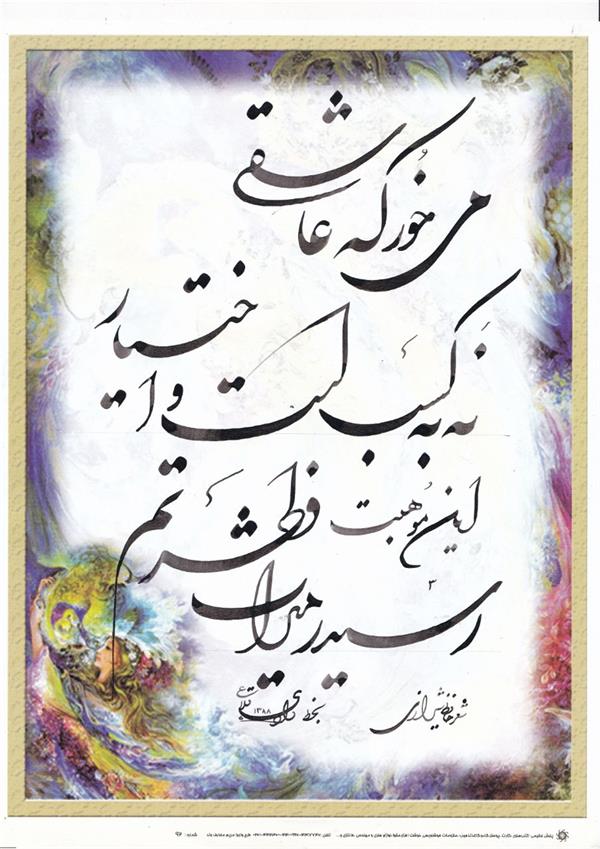 می خور که عاشقی
نه به کسب است و اختیار
این موهبت
رسید ز میراث فطرتم
شعر حافظ شیرازی
بخط
۱۳۸۸